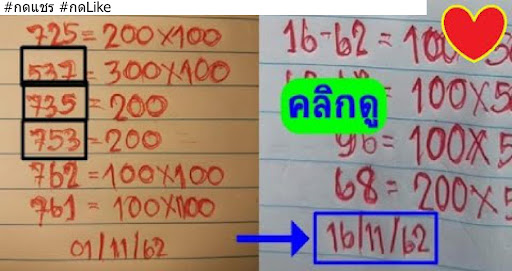 #กดแชร #กดLike
725 = 200x100
537 = 300x100
735 = 200
753 = 200
762 = 100x100
761 = 100x100
01/11/62
16-62 = 100
คลิกดู
= 100x5
96 = 100x5
68 = 200x5
16/11/62